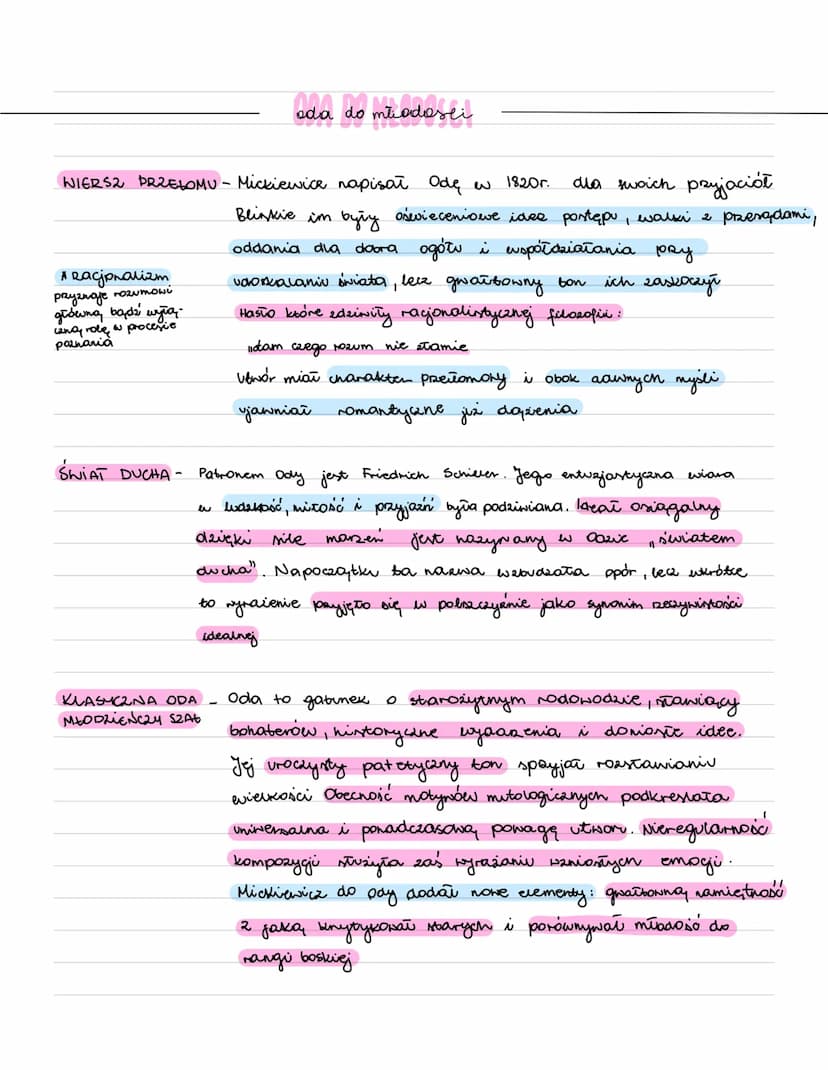 ODA DO MŁODOŚCI
oda do młodości
WIERSZ PRZEŁOMU - Mickiewicz napisał Odę w 1820r. dla swoich przyjaciół
Bliskie im były oświeceniowe idee postępu, walki z przesądami,
oddania dla dobra ogółu i współdziałania przy
udoskalaniu świata, lecz gwałtowny ton ich zaskoczył
Hasło które zdziwiły racjonalistycznej filozofii:
„dam czego rozum nie złamie
Utwór miał charakter przełomowy i obok dawnych myśli
ujawniał romantyczne już dążenia
* racjonalizm
przyznaje rozumowi
główną bądź wyłą-
czną rolę w procesie
poznania
ŚWIAT DUCHA - Patronem Ody jest Friedrich Schiller. Jego entuzjastyczna wiara
w ludzkość, miłość i przyjaźń była podziwiana. Ideał osiągalny
dzięki sile marzeń jest nazywany w Odzie „światem
ducha". Napoczątku ta nazwa wzbudzała opór, lecz wkrótce
to wyrażenie przyjęto się w polszczyźnie jako synonim rzeczywistości
idealnej
KLASYCZNA ODA - Oda to gatunek o starożytnym rodowodzie, sławiący
MŁODZIEŃCZY SZAŁ
bohaterów, historyczne wydarzenia i doniosłe idee.
Jej uroczysty patetyczny ton sprzyjał rozsławianiu
wielkości Obecność motywów mitologicznych podkreślała
uniwersalna i ponadczasową powagę utworu. Nieregularność
kompozycji służyła zaś wyrażaniu wzniosłych emocji.
Mickiewicz do ody dodał nowe elementy: gwałtowną namiętność
z jaką krytykował starych i porównywał młodość do
rangi boskiej